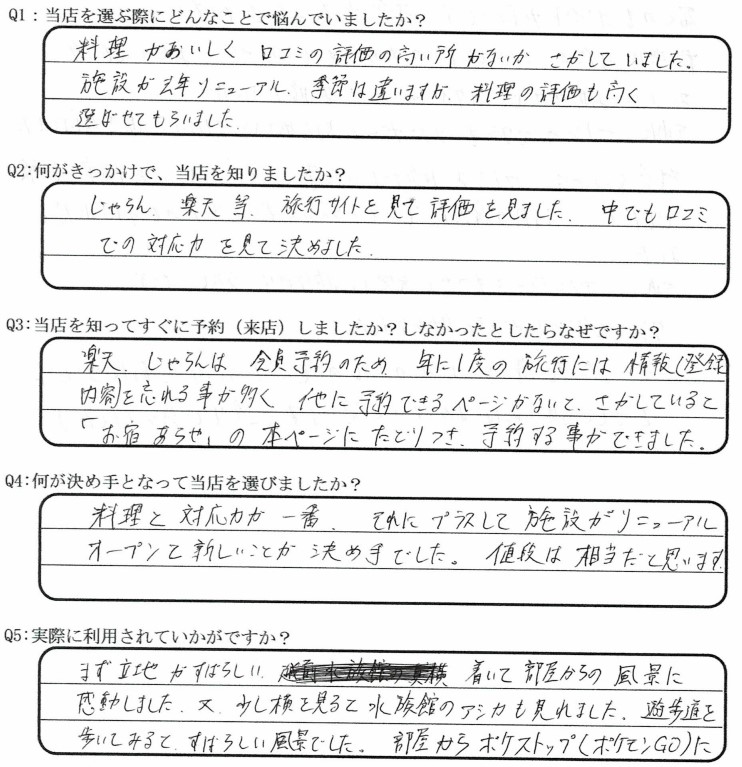 Q1：当店を選ぶ際にどんなことで悩んでいましたか？
料理がおいしく 口コミの評価の高い所がないか さがしていました。
施設が去年リニューアル、季節は違いますが、料理の評価も高く
選ばせてもらいました。
Q2：何がきっかけで、当店を知りましたか？
じゃらん、楽天 等、旅行サイトを見て評価を見ました、中でも口コミ
での対応力を見て決めました。
Q3：当店を知ってすぐに予約（来店）しましたか？しなかったとしたらなぜですか？
楽天、じゃらんは 会員予約のため、年に1度の旅行には 情報(登録
内容)を忘れる事が多く 他に予約できるページがないと、さがしていると
「お宿 あらや」の本ページにたどりつき、予約する事ができました。
Q4：何が決め手となって当店を選びましたか？
料理と対応力が一番、それにプラスして施設がリニューアル
オープンで新しいことが決め手でした。値段は相当だと思います
Q5：実際に利用されていかがですか？
まず立地がすばらしい、着いて部屋からの風景に
感動しました、又、少し横を見ると水族館のアシカも見れました、遊歩道を
歩いてみると、すばらしい風景でした。部屋からポケストップ(ポケモンGO)に